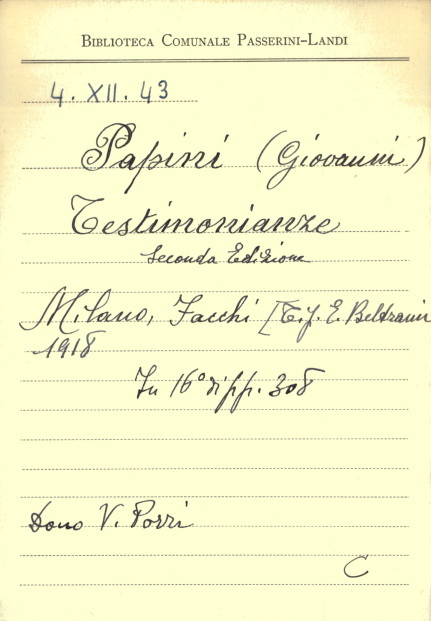 BIBLIOTECA COMUNALE PASSERINI-LANDI
4. XII. 43
Papini (Giovanni)
Testimonianze
Seconda Edizione
Milano, Facchi [T.f. E. Beltrami
1918
In 16° di pp. 308
Dono V. Porri
C